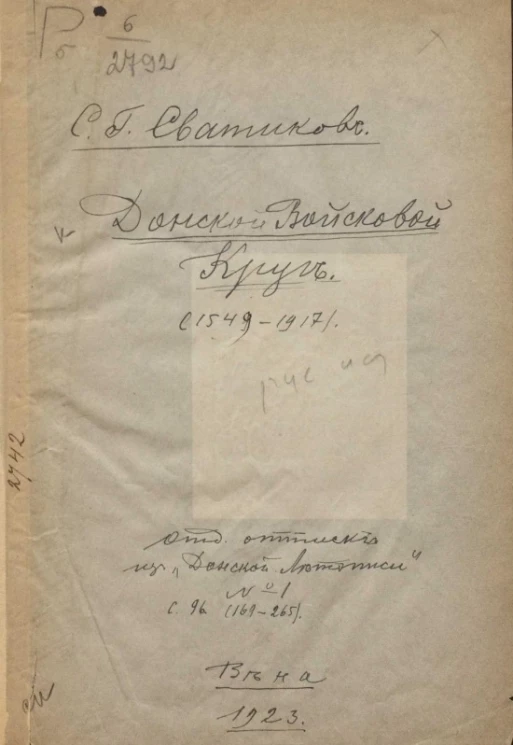 Р 6
б 2792
С. Г. Сватиковъ.
Донской Войсковой
Кругъ.
(1549-1917).
рус ист
2742
Отд. оттискъ
из „Донской Лѣтописи“
№ 1
с. 96 (169-265).
Вѣна
1923.